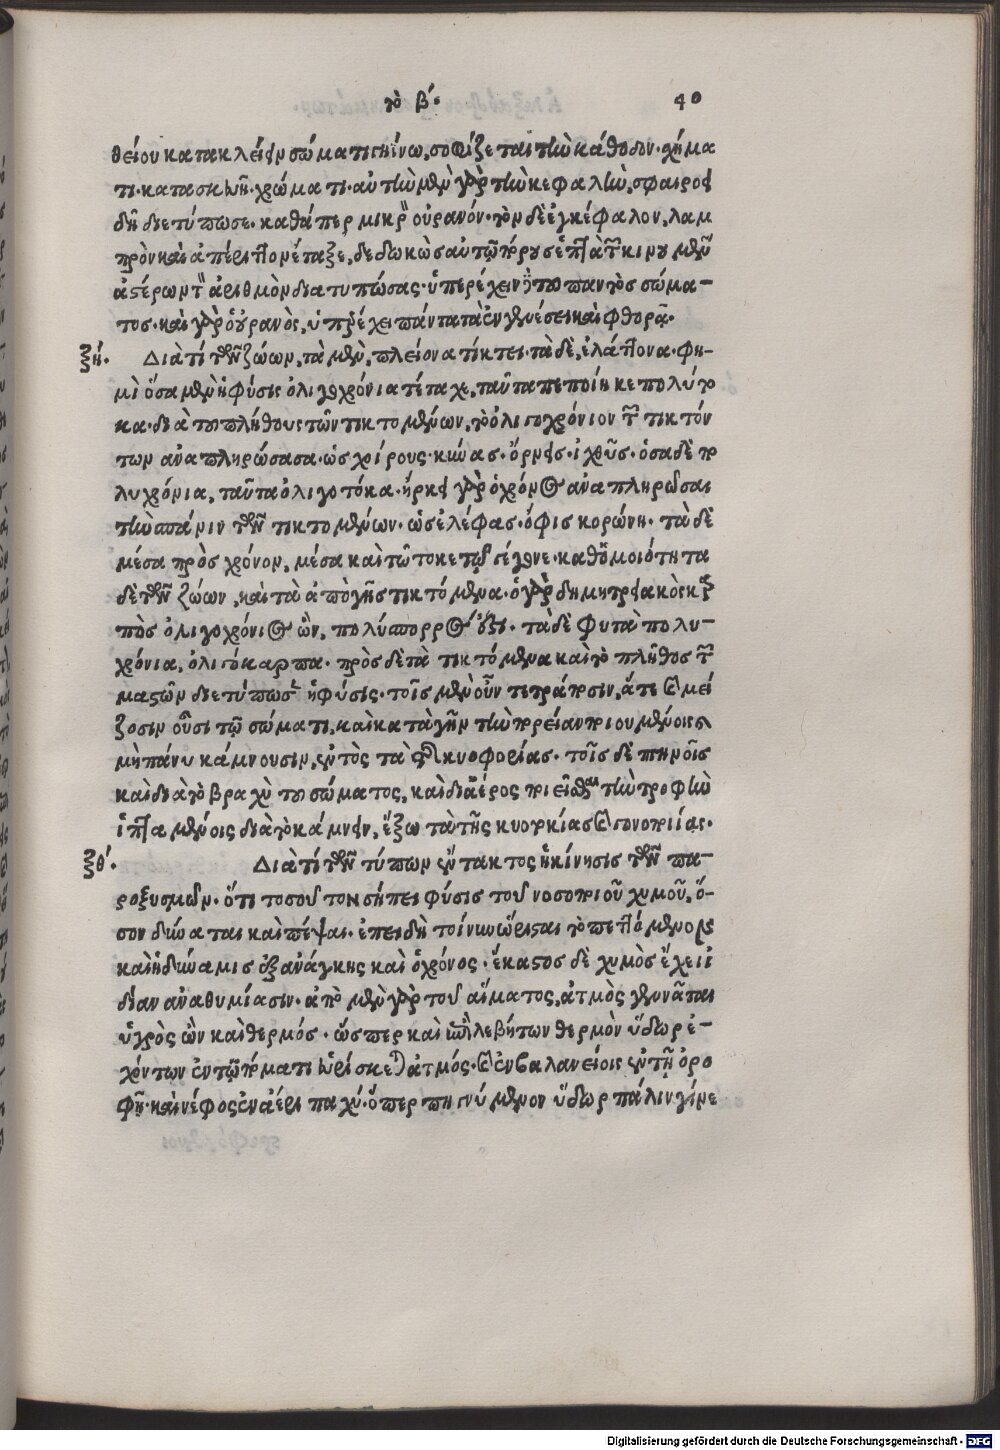 τὸ β´.
40
θείου κατακλείειν σώματι γηίνω, σοφίζεται τὴν κάθοδον. χήμα
τι. κατασκευῆ. χρώματι. αὐτὴν μὲν γὰρ τὴν κεφαλὴν, σφαιροει
δῆ διετύπωσε. καθάπερ μικρὸν οὐρανόν. τὸν δὲ ἐγκέφαλον, λαμ
πρὸν καὶ ἀπέριττον ἔταξε, δεδωκὼς αὐτῷ
ἀστέρων τὸν ἀριθμὸν διατυπώσας. ὑπερέχειν τοῦ παντὸς σώμα-
τος. καὶ γὰρ ὁ οὐρανὸς, ὑπερέχει πάντα τὰ ἐν γενέσει καὶ φθορᾷ.
ξή. Διὰ τί τῶν ζώων, τὰ μὲν, πλείονα τίκτει. τὰ δὲ, ἐλάττονα. φη-
μὶ ὅσα μὲν ἡ φύσις ὀλιγοχρόνια τέταχε, ταῦτα πεποίηκε πολύτο
κα. διὰ τοῦ πλήθους τῶν τικτομένων, τὸ ὀλιγοχρόνιον τῶν τικτόν
των ἀναπληρώσασα. ὡς χοίρους. κύνας. ὄρνεις. ἰχθῦς. ὁσα δὲ πο
λυχρόνια, ταῦτα ὀλιγοτόκα. ἤρκει γὰρ ὁ χρόνος ἀναπληρῶσαι
τὴν σπάνιν τῶν τικτομένων. ὡς ἐλέφας. ὄφις κορώνη. τὰ δὲ
μέσα πρὸς χρόνον, μέσα καὶ τῶ τοκετῷ γέγονε. καθ' ὁμοιότητα
δὲ τῶν ζώων, καὶ τὰ ἀπὸ γῆς τικτόμενα. ὁ γὰρ δημητριακὸς καρ
πὸς ὀλιγοχρόνιος ὢν, πολύσπορος τὰ δὲ φυτὰ πολυ-
χρόνια, ὀλιγόκαρπα. πρὸς δὲ τὰ τικτόμενα καὶ τὸ πλῆθος τῶν
μαστῶν διετύπωσεν ἡ φύσις. τοῖς μὲν οὖν τετράποσιν, ἅτε καὶ μεί
ζοσιν οὖσι τῷ σώματι, καὶ κατὰ γῆν τὴν πορείαν ποιουμένοις καὶ
μὴ πάνυ κάμνουσιν, ἐντὸς τὰ τῆς κυοφορίας. τοῖς δὲ πτηνοῖς
καὶ διὰ τὸ βραχὺ τοῦ σώματος, καὶ δι' ἀέρος ποιεῖσθαι τὴν τροφὴν
ἱπταμένοις διὰ τὸ κάμνειν, ἔξω τὰ τῆς κυο
ξθ´. Διὰ τί τῶν τύπων εὔτακτος ἡ κίνησις τῶν πα-
ροξυσμῶν. ὅτι τοσοῦτον σήπει φύσις τοῦ νοσοποιοῦ χυμοῦ, ὅ-
σον δύναται καὶ πέψαι. ἐπειδὴ τοίνυν ὥρισται τὸ πεττόμενον
καὶ ἡ δύναμις ἐξ ἀνάγκης καὶ ὁ χρόνος. ἕκαστος δὲ χυμὸς ἔχει ἰ
δίαν ἀναθυμίασιν. ἀπὸ μὲν γὰρ τοῦ αἵματος, ἀτμὸς γεννᾶται
ὑγρὸς ὢν καὶ θερμός. ὥσπερ καὶ ἐπὶ λεβήτων θερμὸν ὕδωρ ἐ-
χόντων ἐν τῷ πώματι εὑρίσκεται ἀτμός. καὶ ἐν βαλανείοις ἐν τῇ ὀρο
φῇ. καὶ νέφος ἐν ἀέρι παχύ. ὅπερ πηγνύμενον ὕδωρ πάλιν γίνε
Digitalisierung gefördert durch die Deutsche Forschungsgemeinschaft - DFG